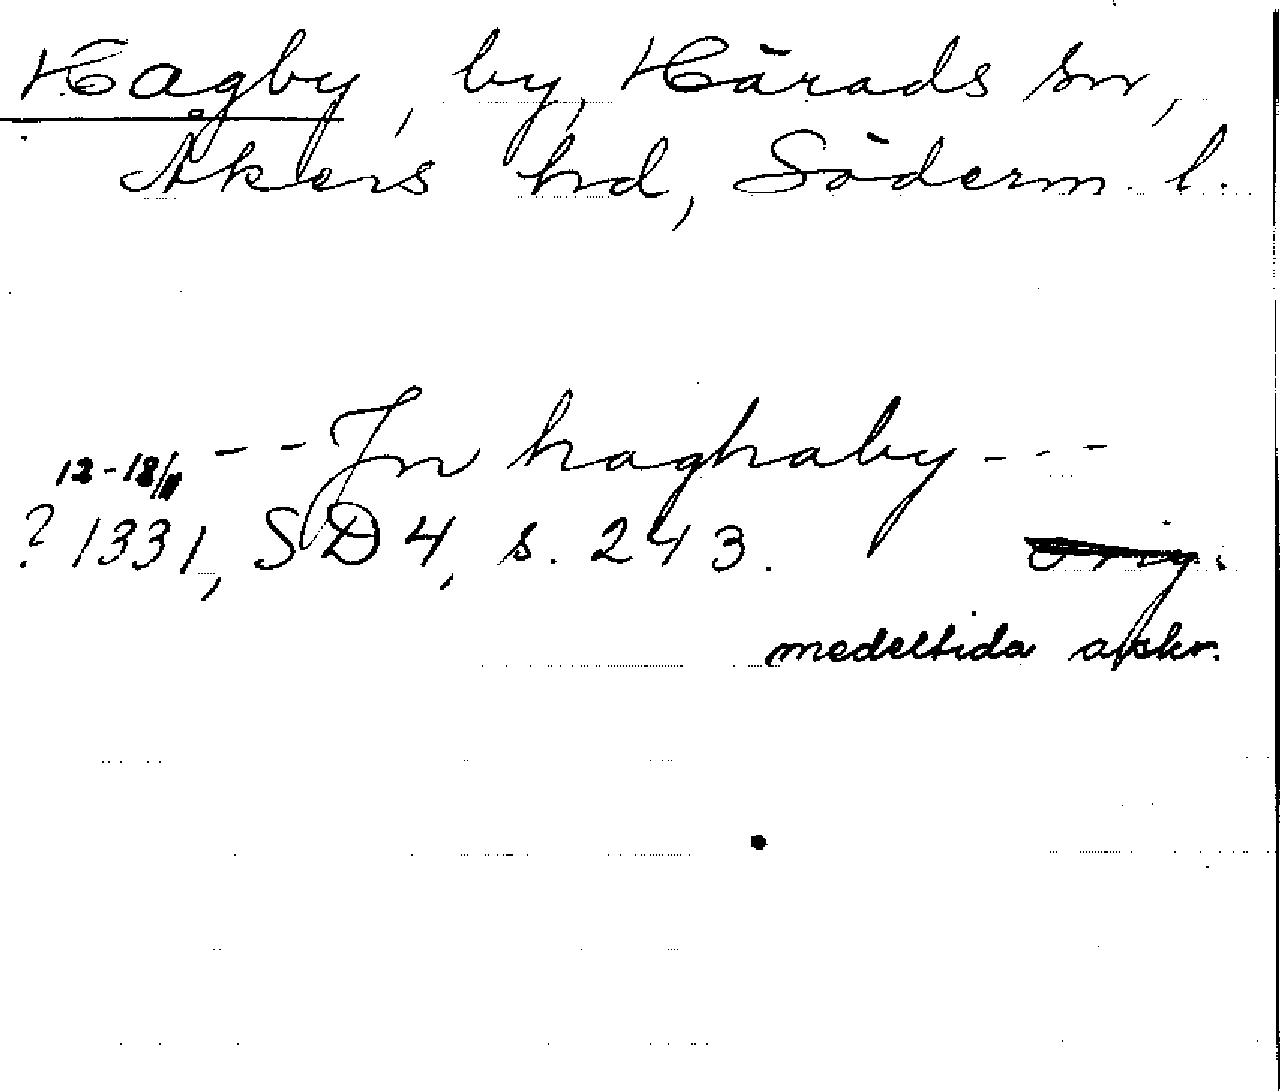 Hagby, by, Härads sn,
Åkers hd, Söderm. l.
12-18/11 - - In haghaby - - -
? 1331, SD 4, s. 243. Orig.
medeltida avskr.